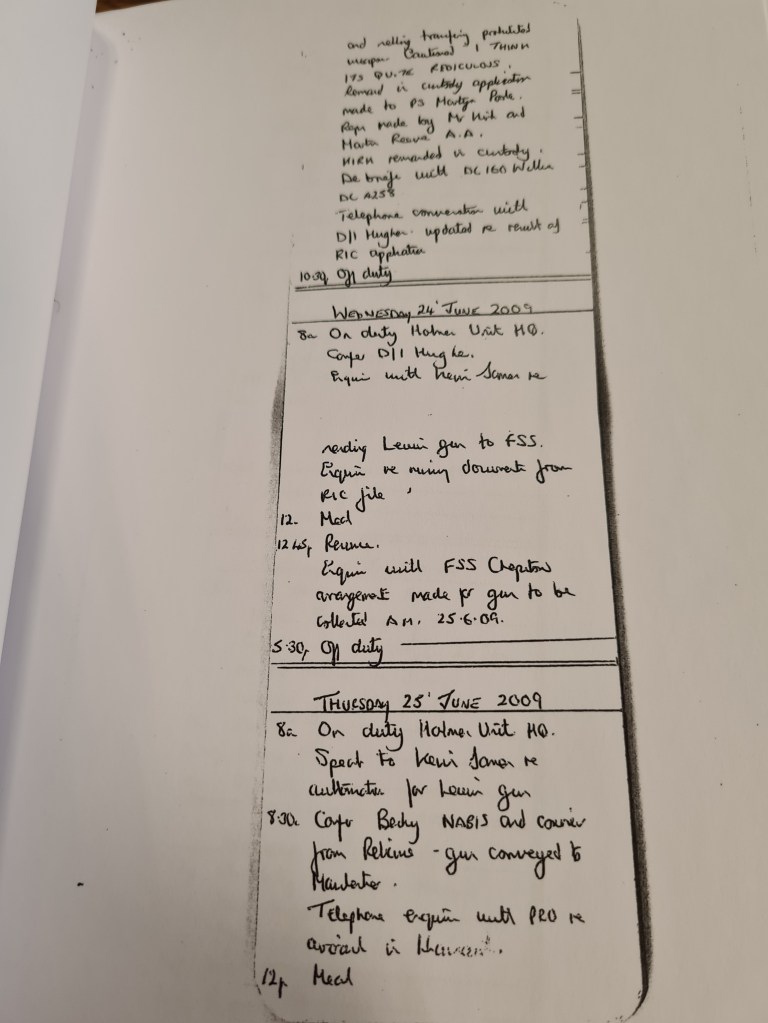 and selling transfering prohibited
weapon Cautioned I THINK
ITS QUITE REDICULOUS.
Remand in custody application
made to PS Martyn
Reps made by Mr Kirk and
A.A.
KIRK remanded in custody.
De brief with DC 160
DC A258
Telephone conversation with
D/I Hughes. updated re result of
RIC application
10.30p Off duty
WEDNESDAY 24' JUNE 2009
8a On duty Holmes Unit HQ.
Confer D/I Hughes.
Enquiry with re
sending Lewis gun to FSS.
Enquiry re missing documents from
RIC file
12- Meal
12.45p Resume.
Enquiry with FSS Chepstow
arrangements made for gun to be
collected A.M. 25.6.09.
5.30p Off duty
THURSDAY 25' JUNE 2009
8a On duty Holmes Unit HQ.
Speak to re
for Lewis gun
8.30a Confer Becky NABIS and courier
from - gun conveyed to
Manchester.
Telephone enquiry with PRO re
in
12p Meal